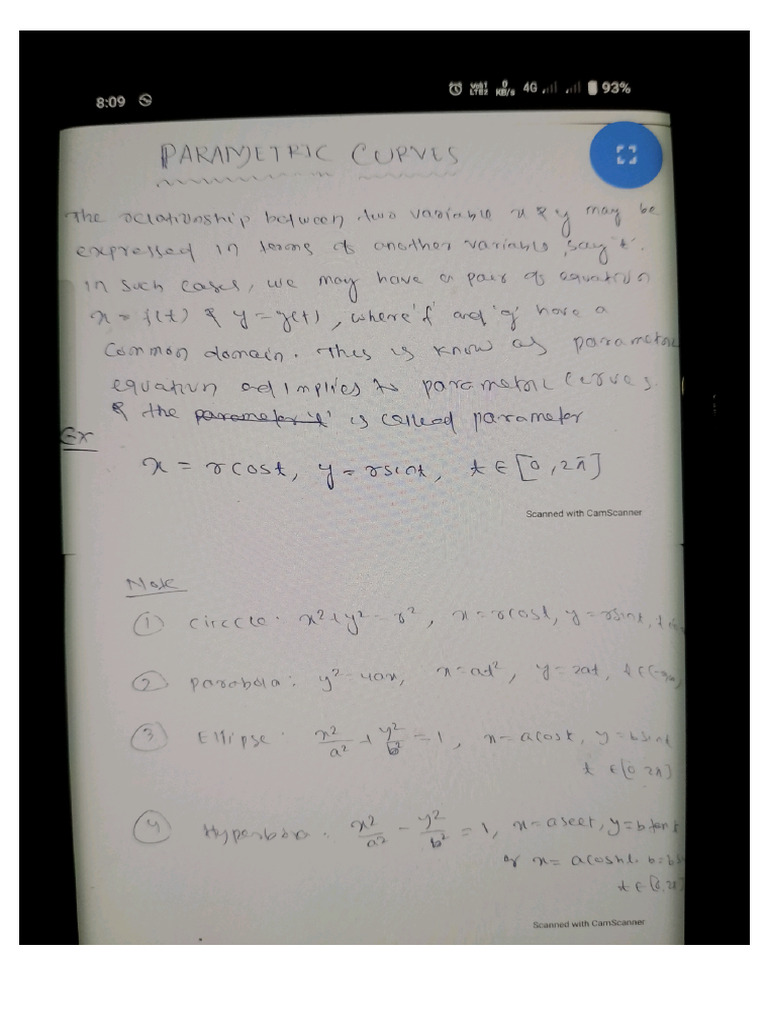 8:09
VoLTE LTE2 0 KB/s 4G 93%
PARAMETRIC CURVES
The relationship between two variable x & y may be
expressed in terms of another variable, say 't'.
in such cases, we may have a pair of equation
x = f(t) & y = g(t), where 'f' and 'g' have a
common domain. This is know as parametric
equation ad implies to parametric curves.
& the parameter 't' is called parameter
Ex
x = r cost, y = r sint, t ∈ [0, 2π]
Scanned with CamScanner
Note
① Circcle: x² + y² = r², x = r cost, y = r sint, t ∈
② Parabola: y² = 4ax, x = at², y = 2at, t ∈ (-∞,
③ Ellipse: x²/a² + y²/b² = 1, x = a cost, y = b sint
t ∈ [0 2π]
④ Hyperbola: x²/a² - y²/b² = 1, x = a sect, y = b tant
or x = a cosht. b = b
t ∈ [0, 2π]
Scanned with CamScanner